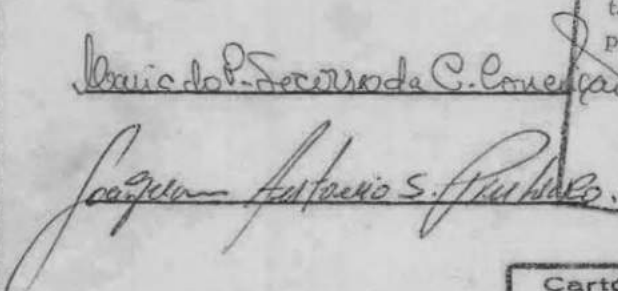 Maria do P. Socorro da C. Conceição
Joaquim Antonio S. Pinheiro.
Carto